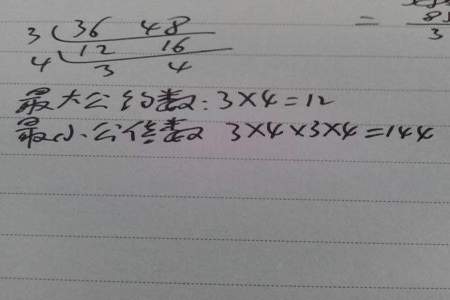 3 36 48
4 12 16
3 4
最大公约数:3×4=12
最小公倍数 3×4×3×4=144
=
3